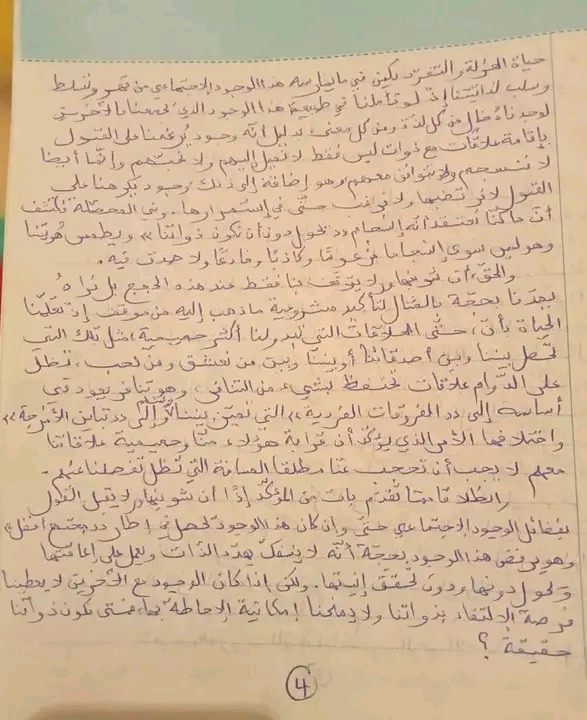 حياة العزلة والتفرّد يكمن في ما يمارسه هذا الوجود الاجتماعي من قهر وتسلّط
وسلب لذاتيتنا إذ لو تأملنا في طبيعة هذا الوجود الذي يجمعنا بالآخرين
لوجدناه خال من كل لذة ومن كل معنى بدليل أنّه وجود يُرغمنا على القبول
بإقامة علاقات مع ذوات ليس فقط لا نميل إليهم ولا نحبّهم وإنّما أيضا
لا ننسجم ولا نتوافق معهم وهو إضافة إلى ذلك وجود يكرهنا على
القبول لا نرتضيها ولا نرغب حتّى في استمرارها. وفي المحصّلة نكتشف
أنّ ما كنّا نعتقد أنه إنسجام "تحول دون أن نكون ذواتنا" ويطمس هُويّتنا
وهو ليس سوى إنسجاما مزعوما وكاذبا وخادعا ولا صدق فيه.
والحقّ، أن شوبنهاور لا يتوقّف بنا فقط عند هذه الحجج بل نراهُ
يمدّنا بحجّة بالمثال لتأكيد مشروعية ما ذهب إليه من موقف إذ تعلّمنا
الحياة بأنّ، حتّى العلاقات التي تبدو لنا أكثر حميمية، مثل تلك التي
تحصل بيننا وبين أصدقائنا أو بيننا وبين من نعشق ومن نحب، تظلّ
على الدّوام علاقات تحتفظ بشيء من التنافر، وهو تنافر يعود في
أساسه إلى "الفروقات الفردية" التي تميّز بيننا وإلى "تباين الأمزجة"
واختلافها الأمر الذي يؤكّد أن قرابة هؤلاء منّا وحميمية علاقاتنا
معهم لا يجب أن تحجب عنّا مطلقا المسافة التي تظلّ تفصلنا عنهم.
إنطلاقا ممّا تقدّم بات من المؤكّد إذًا أن شوبنهاور لا يقبل القول
بفضائل الوجود الاجتماعي حتّى وإن كان هذا الوجود يحصل في إطار "مجتمع أمثل"
وهو يرفض هذا الوجود بحجّة أنّه لا ينفكّ يهدّد الذّات ويعمل على إعاقتها
ويحول دونها ودون تحقق إنيتها. ولكن إذا كان الوجود مع الآخرين لا يعطينا
فرصة الالتقاء بذواتنا ولا يمنحنا إمكانية الإحاطة بها، فمتى نكون ذواتنا
حقيقةً؟
4